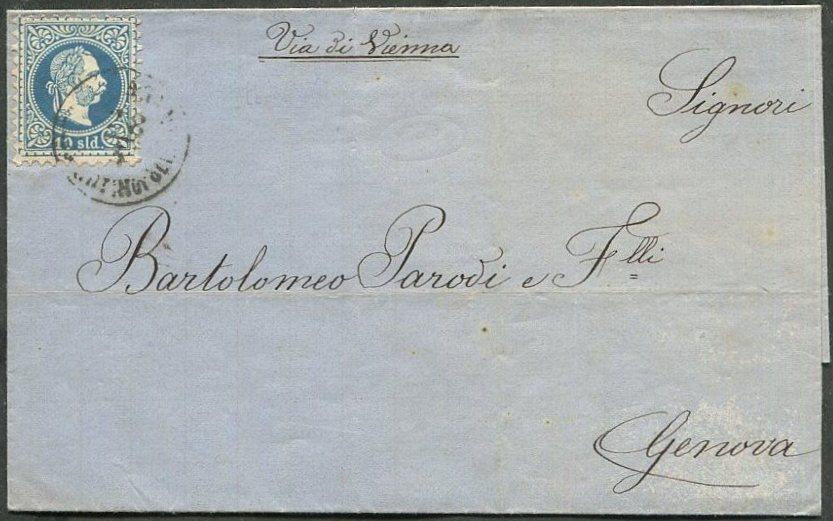 Via di Vienna
10 sld.
Signori
Bartolomeo Parodi e Flli
Genova